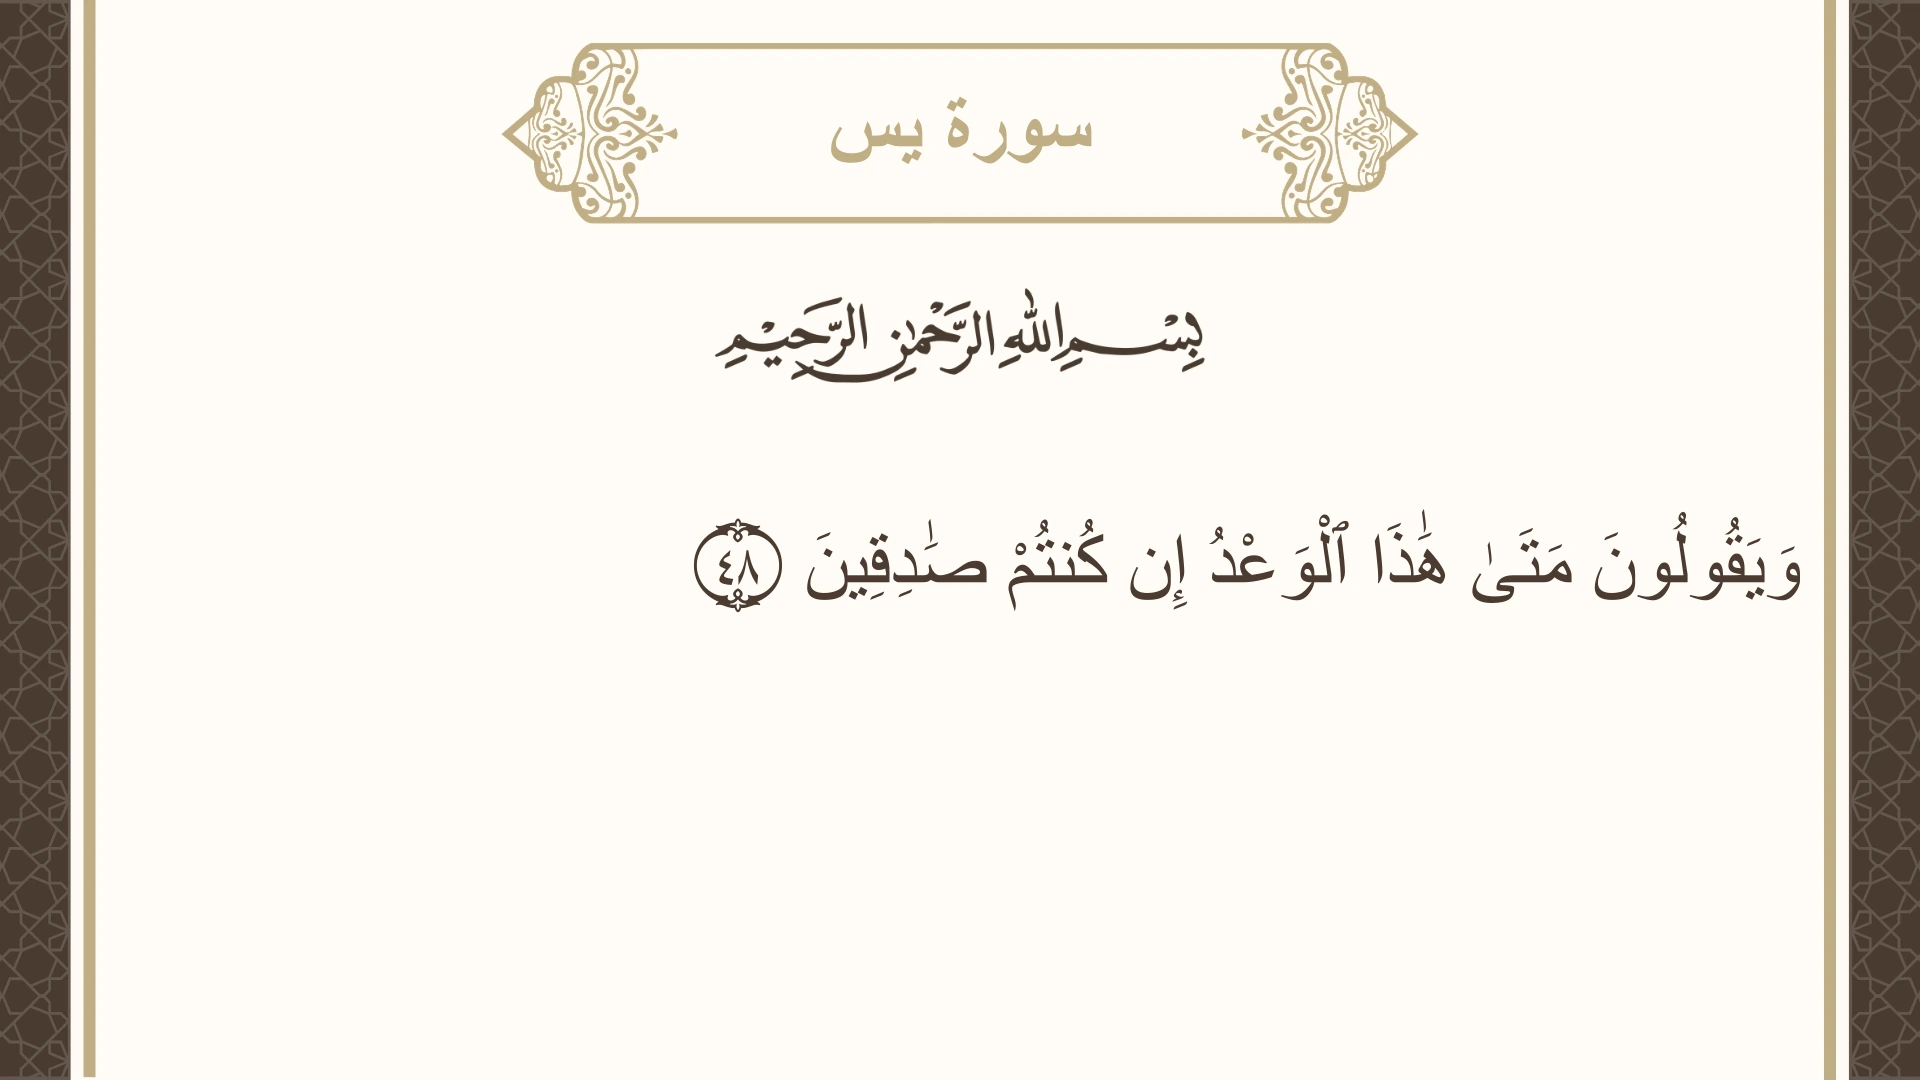 سورة يس
بِسْمِ اللهِ الرَّحْمٰنِ الرَّحِيْمِ
وَيَقُولُونَ مَتَىٰ هَٰذَا ٱلْوَعْدُ إِن كُنتُمْ صَٰدِقِينَ ٤٨